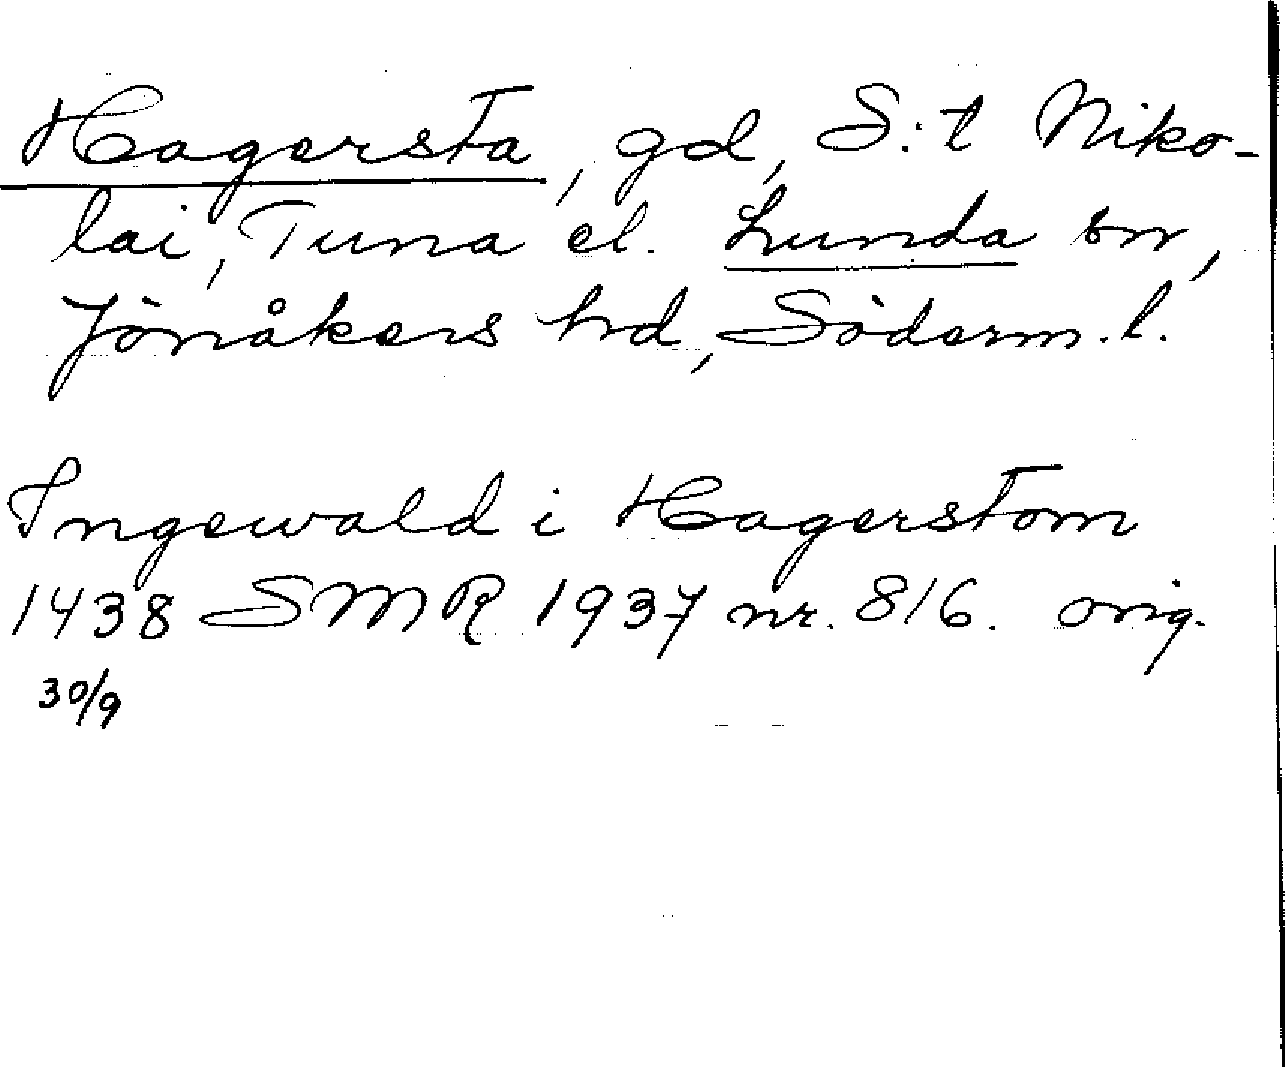 Hagersta, gd, S:t Niko-
lai, Tuna el. Lunda sn,
Jönåkers hd, Söderm. l.
Ingewald i Hagerstom
1438 SMR 1937 nr. 816. orig.
30/9